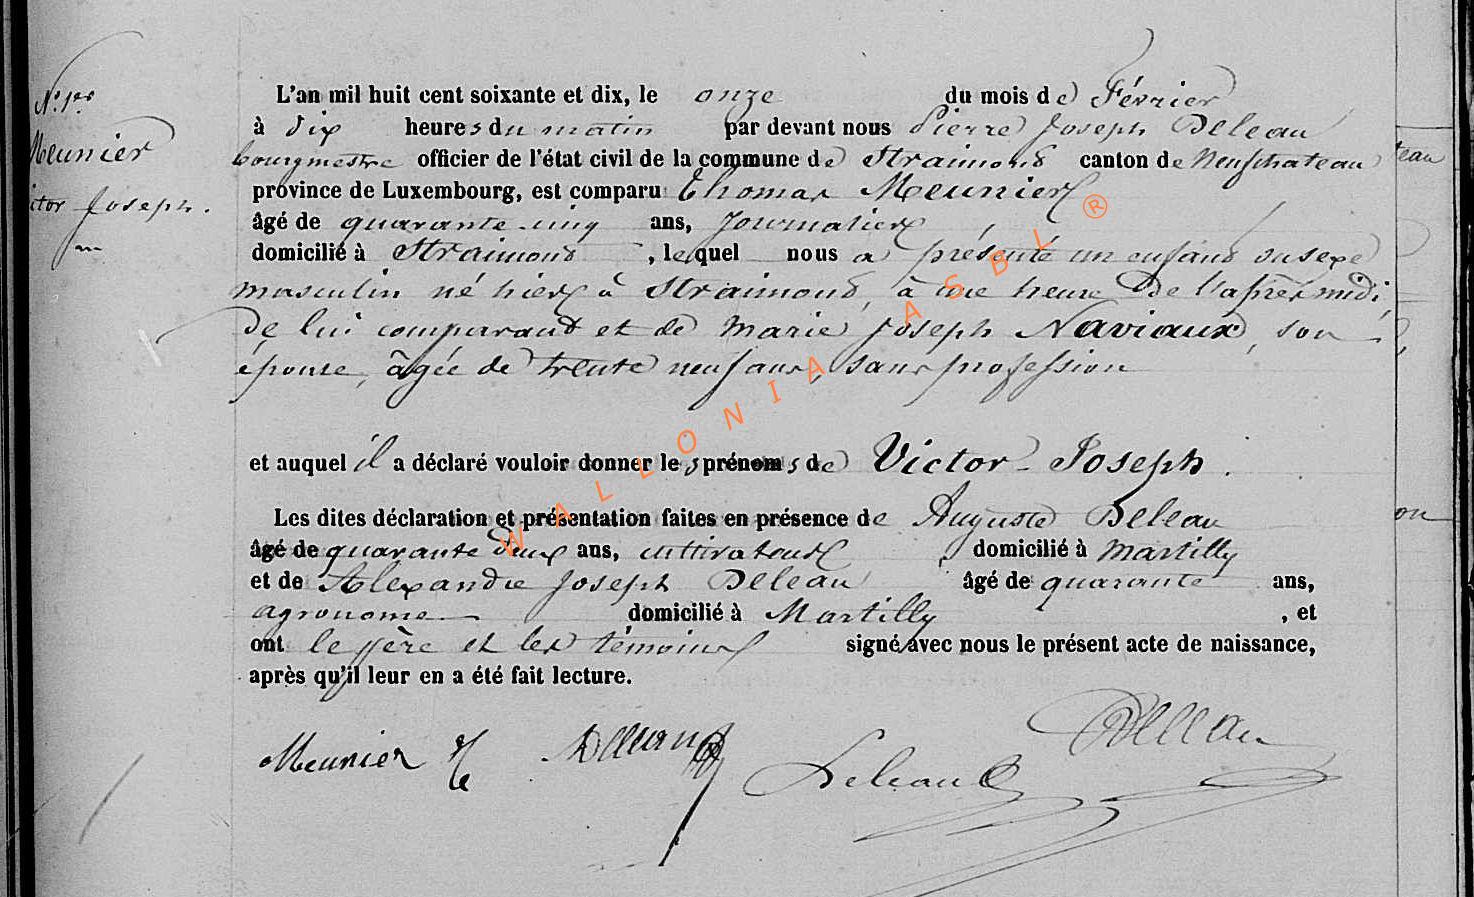 N° 1er
Meunier
ictor Joseph.
m
L'an mil huit cent soixante et dix, le onze du mois de Février
à dix heures du matin par devant nous Pierre Joseph Deleau
bourgmestre officier de l'état civil de la commune de Straimont canton de Neufchateau
province de Luxembourg, est comparu Thomas Meunier
âgé de quarante cinq ans, Journalier
domicilié à Straimont, lequel nous a présenté un enfant du sexe
masculin né hier à Straimont, à une heure de l'après midi,
de lui comparant et de Marie Joseph Naviaux, son
épouse, âgée de trente neuf ans, sans profession
et auquel il a déclaré vouloir donner les prénoms de Victor-Joseph.
Les dites déclaration et présentation faites en présence de Auguste Deleau
âgé de quarante deux ans, cultivateur, domicilié à Martilly
et de Alexandre Joseph Deleau âgé de quarante ans,
agronome domicilié à Martilly, et
ont le père et les témoins signé avec nous le présent acte de naissance,
après qu'il leur en a été fait lecture.
Meunier T ADeleau Deleau Deleau
teau
on
WALLONIA ASBL ®